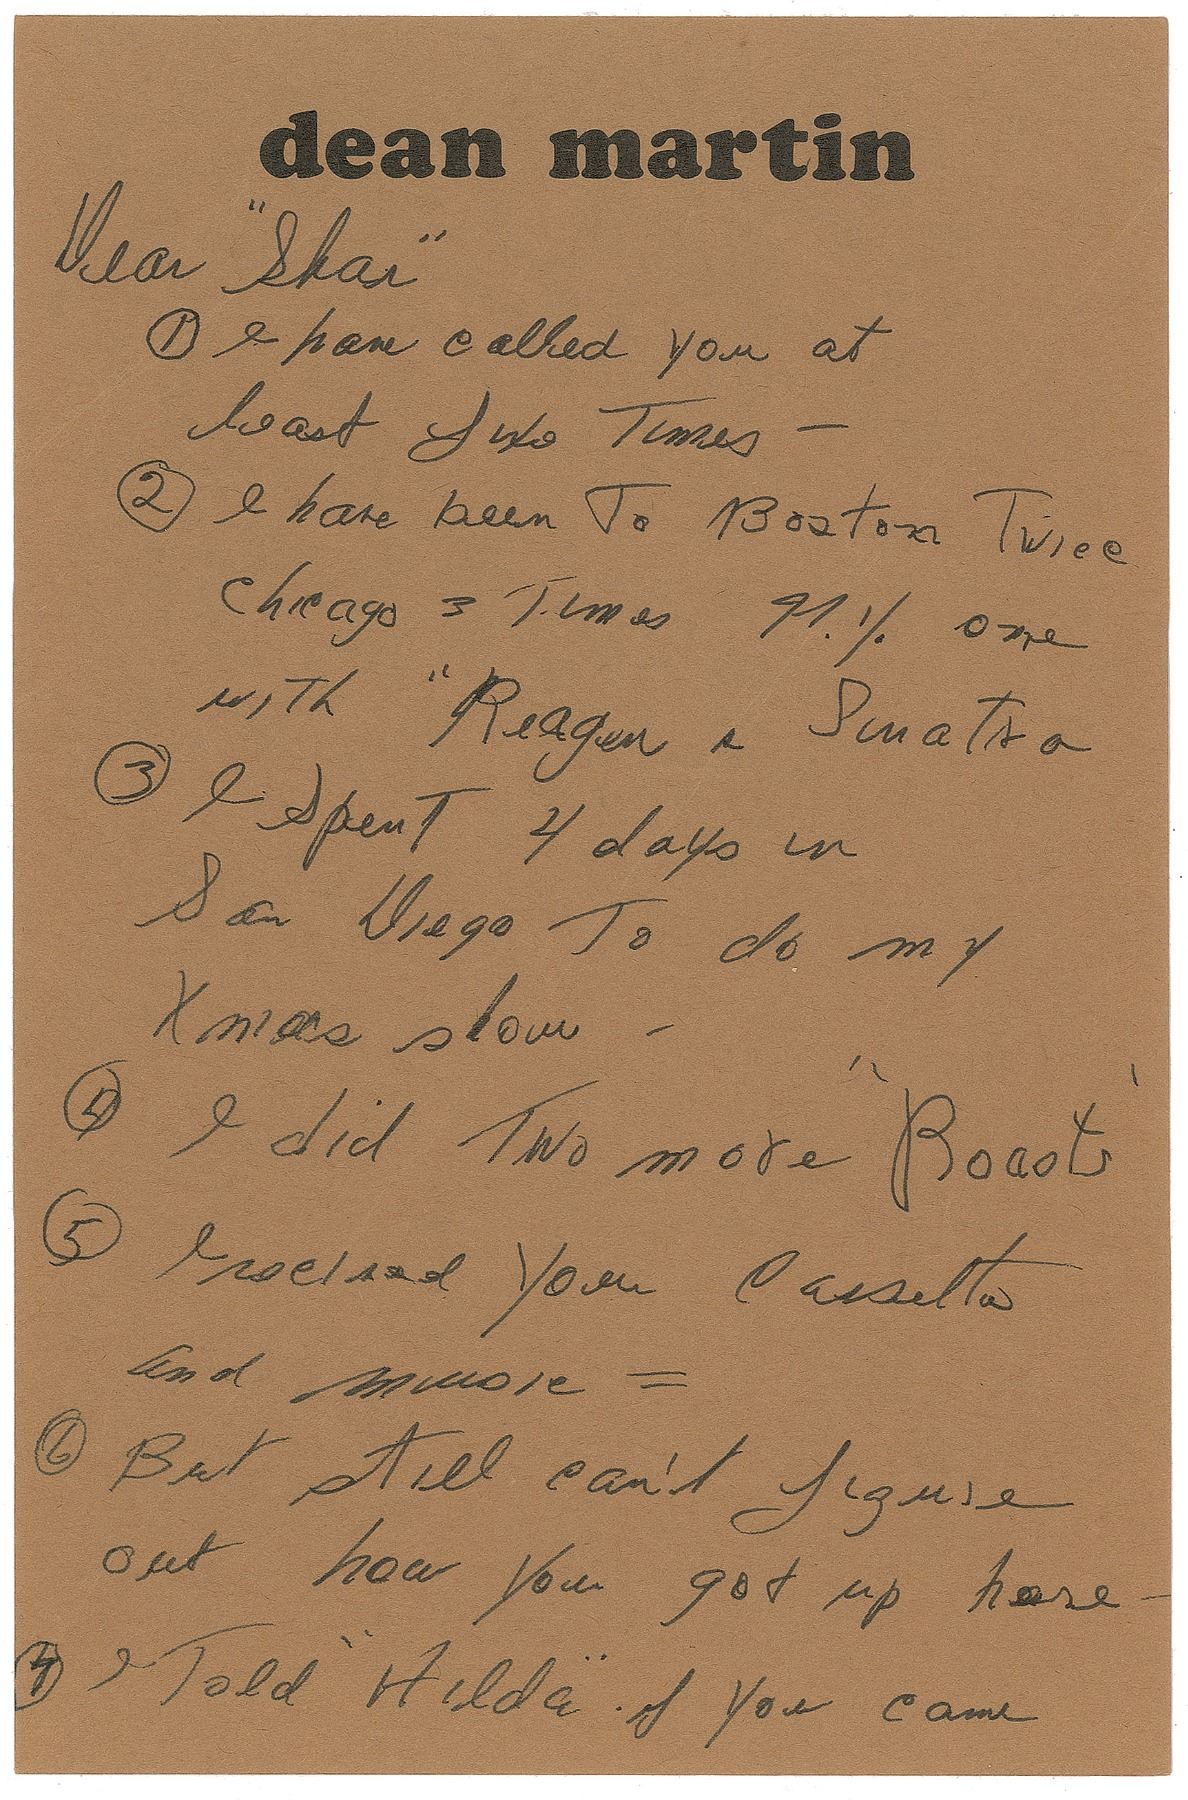 dean martin
Dear "Shar"
① I have called you at
least five Times —
② I have been To Boston Twice
Chicago 3 Times N.Y. one
with "Reagan & Sinatra
③ I Spent 4 days in
San Diego To do my
Xmas show –
④ I did Two more "Roasts'
⑤ I recived your Cassette
and =
⑥ But still can't figure
out how you got up here —
⑦ I Told "Hilda" if you came